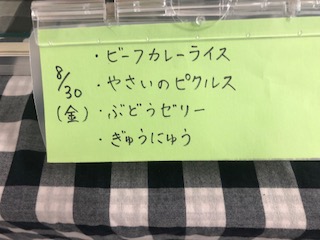 8/30
(金)
・ビーフカレーライス
・やさいのピクルス
・ぶどうゼリー
・ぎゅうにゅう